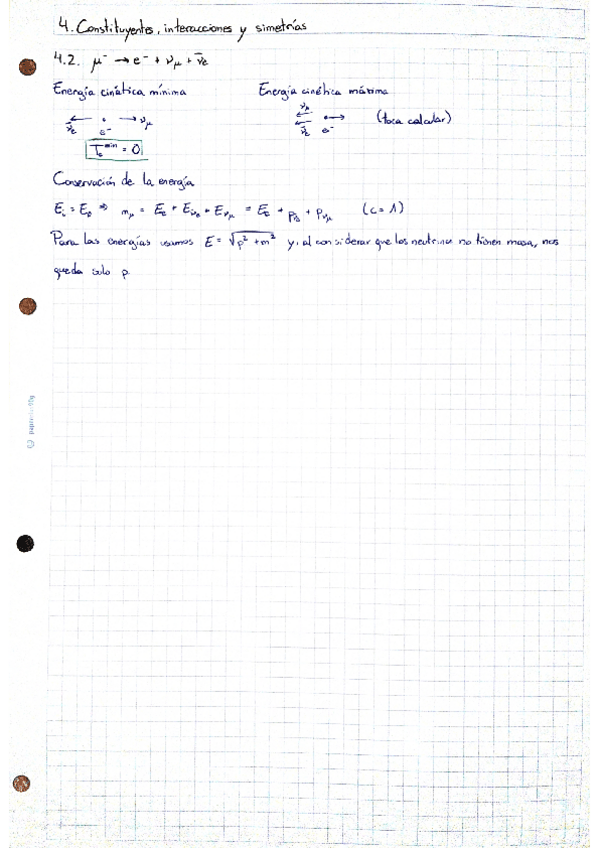 4. Constituyentes, interacciones y simetrías
4.2. μ⁻ → e⁻ + ν_μ + ν̄_e
Energía cinética mínima
Energía cinética máxima
ν̄_e e⁻ ν_μ
T_e^min = 0
ν_μ
ν̄_e e⁻ (toca calcular)
Conservación de la energía
E_i = E_f ⇒ m_μ = E_e + E_ν̄e + E_νμ = E_e + p_ν̄e + p_νμ (c = 1)
Para las energías usamos E = √(p² + m²) y, al considerar que los neutrinos no tienen masa, nos
queda solo p